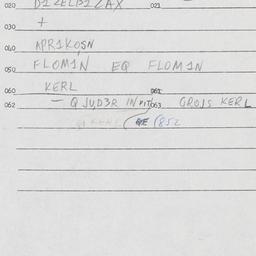 020 D1ZELB1ZAX 021
030 +
040 APR1KOSN
050 FLOM1N EQ FLOM1N
060 KERL 061
062 — Q JUD3R IN PIT 063 GROIS KERL
(852